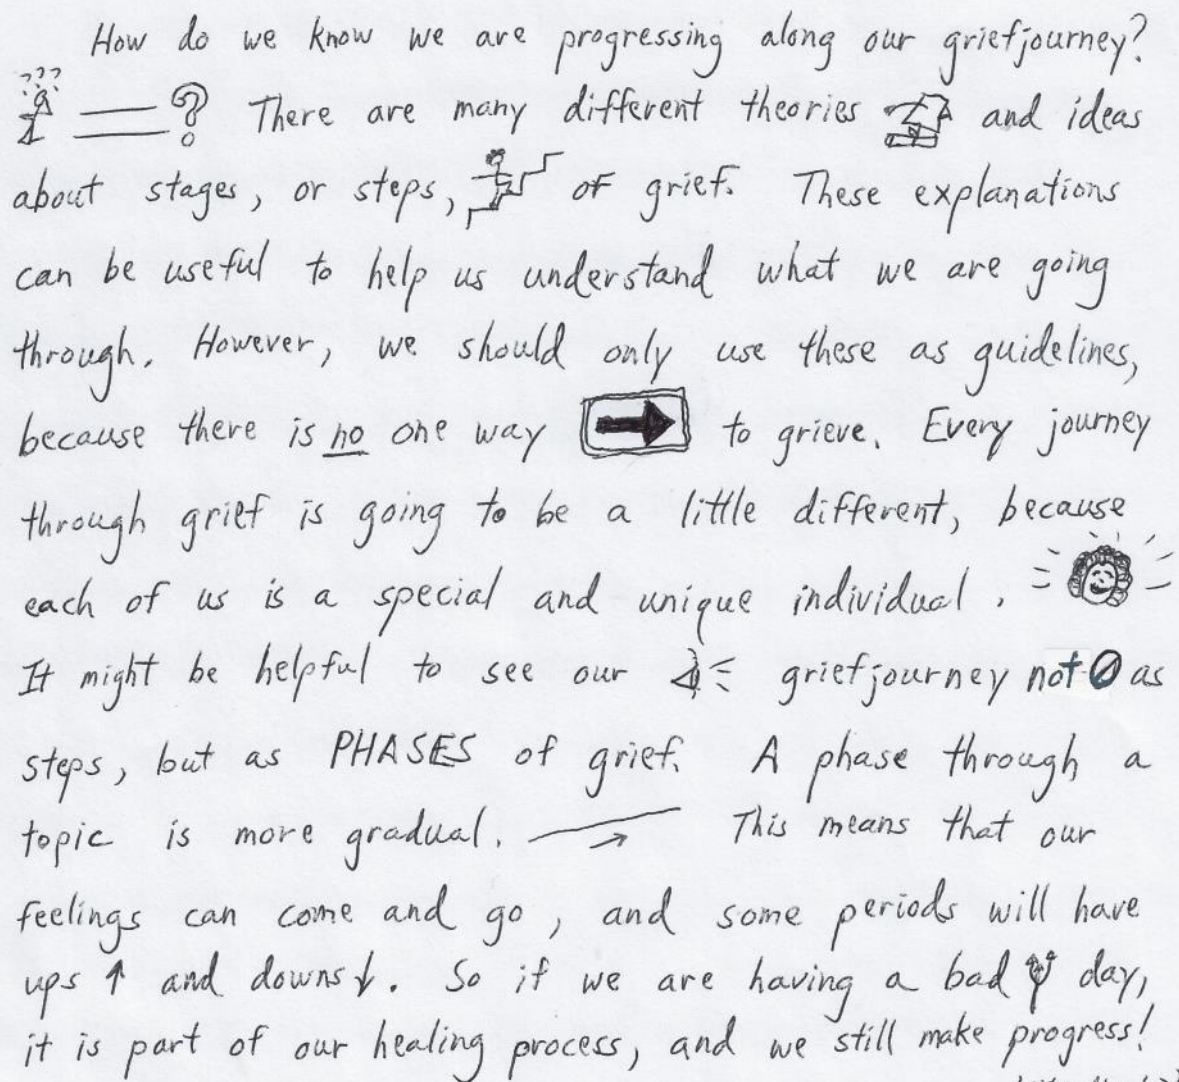 How do we know we are progressing along our griefjourney?
??? ? There are many different theories and ideas
about stages, or steps, of grief. These explanations
can be useful to help us understand what we are going
through. However, we should only use these as guidelines,
because there is no one way to grieve. Every journey
through grief is going to be a little different, because
each of us is a special and unique individual.
It might be helpful to see our griefjourney not as
steps, but as PHASES of grief. A phase through a
topic is more gradual. This means that our
feelings can come and go, and some periods will have
ups ↑ and downs ↓. So if we are having a bad day,
it is part of our healing process, and we still make progress!